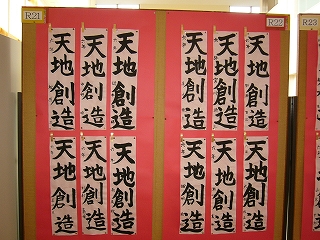 R21
R22
R23
天地創造
天地創造
天地創造
天地創造
天地創造
天地創造
天地創造
天地創造
天地創造
天地創造
天地創造
天地創造